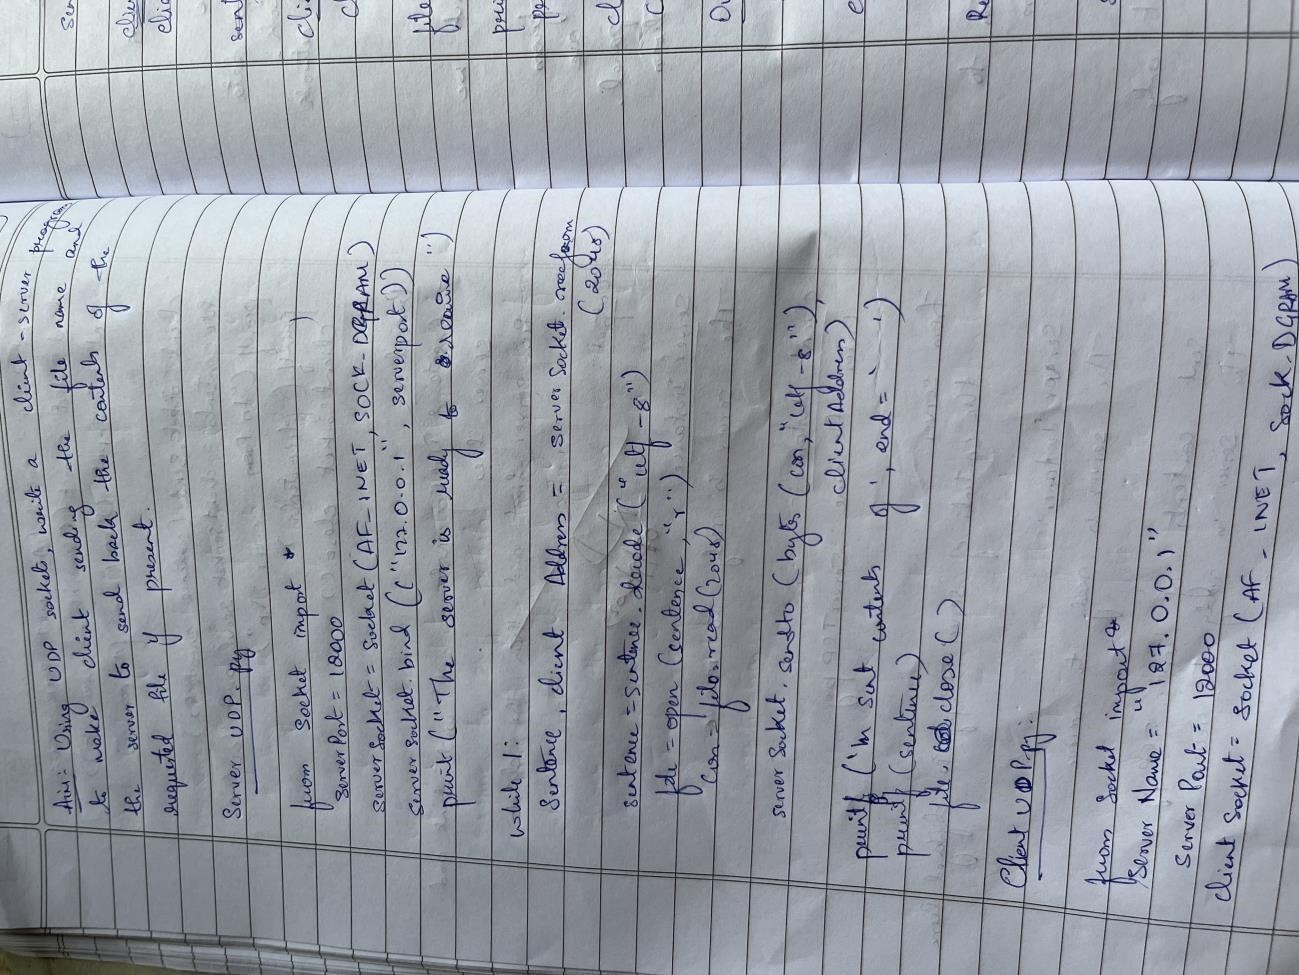 Aim: Using UDP sockets, write a client-server program
to make client sending the file name and
the server to send back the contents of the
requested file if present.
Server UDP.py
from Socket import *
serverPort = 12000
serverSocket = Socket (AF_INET, SOCK_DGRAM)
server Socket.bind (("127.0.0.1", serverport))
print ("The server is ready to receive")
while 1:
Sentence, client Address = server Socket. recvfrom
(2048)
sentence = sentence.decode ("utf-8")
file = open (sentence, "r")
con = file.read (2048)
server Socket. sendto (bytes (con, "utf-8"),
clientAddress)
print ('\n sent contents of ', end = ' ')
print (sentence)
file. close ()
Client UDP.py:
from Socket import *
Server Name = "127.0.0.1"
Server Port = 12000
client Socket = Socket (AF_INET, Sock_DGRAM)
sent
sent
file